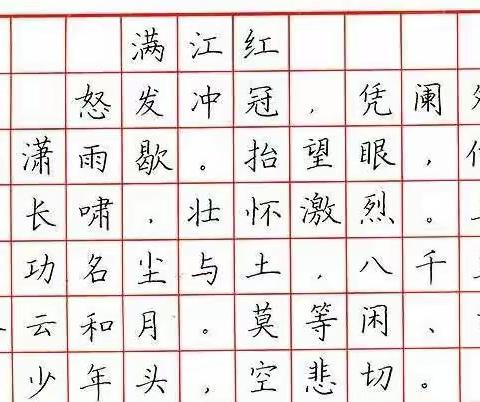 满江红
怒发冲冠，凭阑
潇雨歇。抬望眼，
长啸，壮怀激烈。
功名尘与土，八千
云和月。莫等闲、
少年头，空悲切。